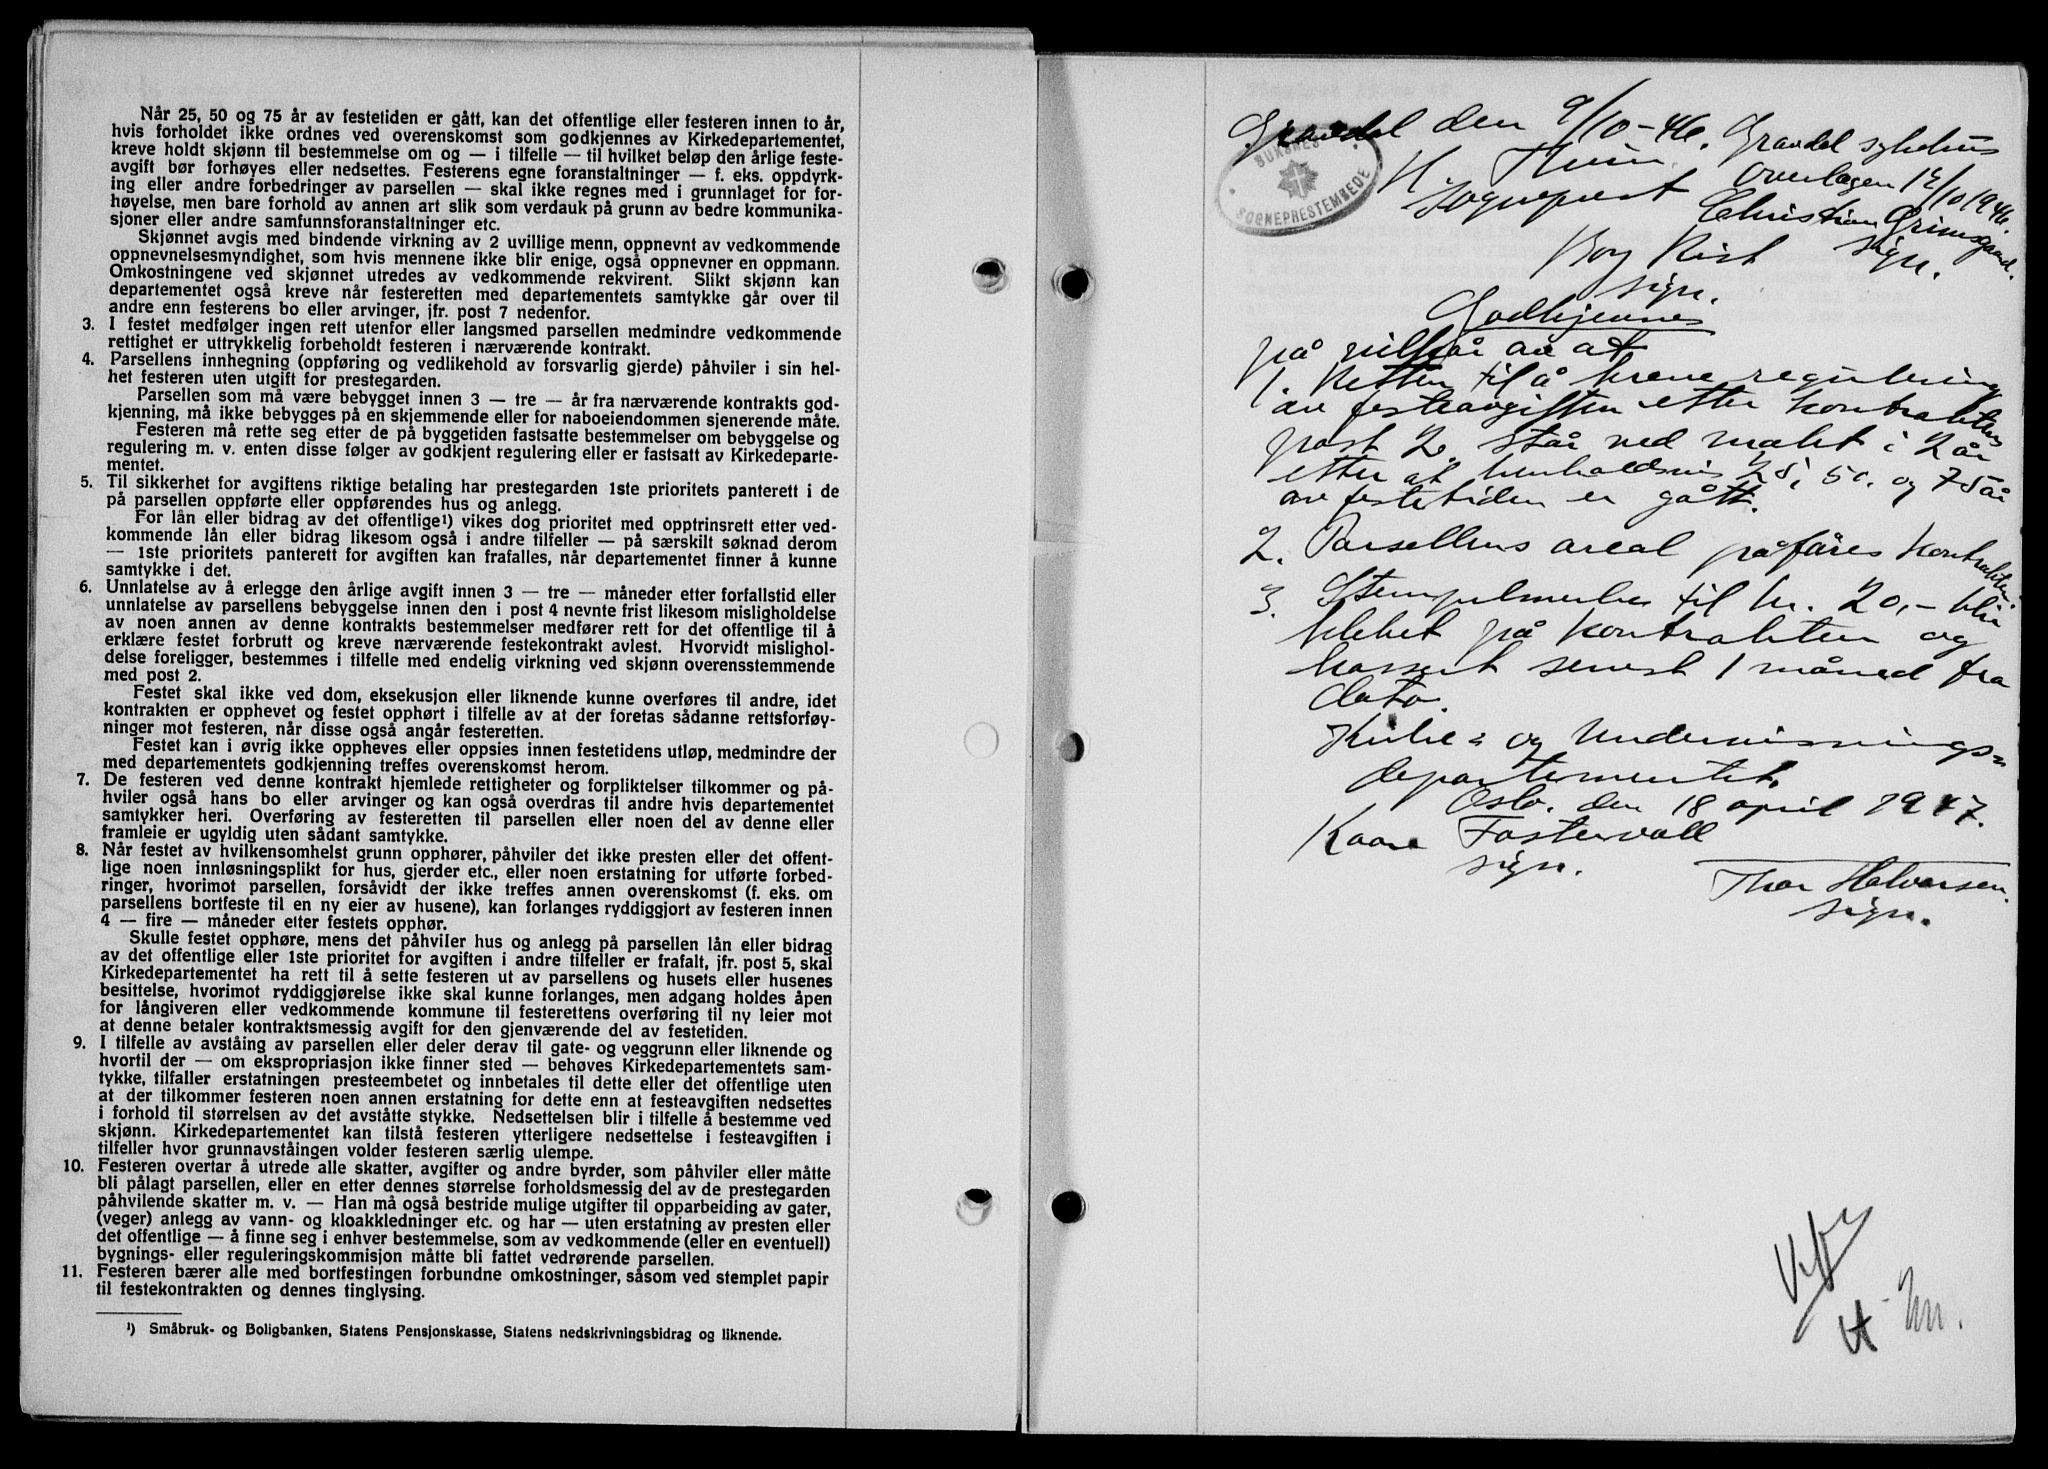 Når 25, 50 og 75 år av festetiden er gått, kan det offentlige eller festeren innen to år,
hvis forholdet ikke ordnes ved overenskomst som godkjennes av Kirkedepartementet,
kreve holdt skjønn til bestemmelse om og — i tilfelle — til hvilket beløp den årlige feste-
avgift bør forhøyes eller nedsettes. Festerens egne foranstaltninger — f. eks. oppdyrk-
ing eller andre forbedringer av parsellen — skal ikke regnes med i grunnlaget for for-
høyelse, men bare forhold av annen art slik som verdauk på grunn av bedre kommunika-
sjoner eller andre samfunnsforanstaltninger etc.
Skjønnet avgis med bindende virkning av 2 uvillige menn, oppnevnt av vedkommende
oppnevnelsesmyndighet, som hvis mennene ikke blir enige, også oppnevner en oppmann.
Omkostningene ved skjønnet utredes av vedkommende rekvirent. Slikt skjønn kan
departementet også kreve når festeretten med departementets samtykke går over til
andre enn festerens bo eller arvinger, jfr. post 7 nedenfor.
3. I festet medfølger ingen rett utenfor eller langsmed parsellen medmindre vedkommende
rettighet er uttrykkelig forbeholdt festeren i nærværende kontrakt.
4. Parsellens innhegning (oppføring og vedlikehold av forsvarlig gjerde) påhviler i sin hel-
het festeren uten utgift for prestegarden.
Parsellen som må være bebygget innen 3 — tre — år fra nærværende kontrakts god-
kjenning, må ikke bebygges på en skjemmende eller for naboeiendommen sjenerende måte.
Festeren må rette seg etter de på byggetiden fastsatte bestemmelser om bebyggelse og
regulering m. v. enten disse følger av godkjent regulering eller er fastsatt av Kirkedeparte-
mentet.
5. Til sikkerhet for avgiftens riktige betaling har prestegarden 1ste prioritets panterett i de
på parsellen oppførte eller oppførendes hus og anlegg.
For lån eller bidrag av det offentlige¹) vikes dog prioritet med opptrinsrett etter ved-
kommende lån eller bidrag likesom også i andre tilfeller — på særskilt søknad derom
— 1ste prioritets panterett for avgiften kan frafalles, når departementet finner å kunne
samtykke i det.
6. Unnlatelse av å erlegge den årlige avgift innen 3 — tre — måneder etter forfallstid eller
unnlatelse av parsellens bebyggelse innen den i post 4 nevnte frist likesom misligholdelse
av noen annen av denne kontrakts bestemmelser medfører rett for det offentlige til å
erklære festet forbrutt og kreve nærværende festekontrakt avlest. Hvorvidt mislighol-
delse foreligger, bestemmes i tilfelle med endelig virkning ved skjønn overensstemmende
med post 2.
Festet skal ikke ved dom, eksekusjon eller liknende kunne overføres til andre, idet
kontrakten er opphevet og festet opphørt i tilfelle av at der foretas sådanne rettsforføy-
ninger mot festeren, når disse også angår festeretten.
Festet kan i øvrig ikke oppheves eller oppsies innen festetidens utløp, medmindre der
med departementets godkjenning treffes overenskomst herom.
7. De festeren ved denne kontrakt hjemlede rettigheter og forpliktelser tilkommer og på-
hviler også hans bo eller arvinger og kan også overdras til andre hvis departementet
samtykker heri. Overføring av festeretten til parsellen eller noen del av denne eller
framleie er ugyldig uten sådant samtykke.
8. Når festet av hvilkensomhelst grunn opphører, påhviler det ikke presten eller det offent-
lige noen innløsningsplikt for hus, gjerder etc., eller noen erstatning for utførte forbed-
ringer, hvorimot parsellen, forsåvidt der ikke treffes annen overenskomst (f. eks. om
parsellens bortfeste til en ny eier av husene), kan forlanges ryddiggjort av festeren innen
4 — fire — måneder etter festets opphør.
Skulle festet opphøre, mens det påhviler hus og anlegg på parsellen lån eller bidrag
av det offentlige eller 1ste prioritet for avgiften i andre tilfeller er frafalt, jfr. post 5, skal
Kirkedepartementet ha rett til å sette festeren ut av parsellens og husets eller husenes
besittelse, hvorimot ryddiggjørelse ikke skal kunne forlanges, men adgang holdes åpen
for långiveren eller vedkommende kommune til festerettens overføring til ny leier mot
at denne betaler kontraktsmessig avgift for den gjenværende del av festetiden.
9. I tilfelle av avståing av parsellen eller deler derav til gate- og veggrunn eller liknende og
hvortil der — om ekspropriasjon ikke finner sted — behøves Kirkedepartementets sam-
tykke, tilfaller erstatningen presteembetet og innbetales til dette eller det offentlige uten
at der tilkommer festeren noen annen erstatning for dette enn at festeavgiften nedsettes
i forhold til størrelsen av det avståtte stykke. Nedsettelsen blir i tilfelle å bestemme ved
skjønn. Kirkedepartementet kan tilstå festeren ytterligere nedsettelse i festeavgiften i
tilfeller hvor grunnavståingen volder festeren særlig ulempe.
10. Festeren overtar å utrede alle skatter, avgifter og andre byrder, som påhviler eller måtte
bli pålagt parsellen, eller en etter dennes størrelse forholdsmessig del av de prestegarden
påhvilende skatter m. v. — Han må også bestride mulige utgifter til opparbeiding av gater,
(veger) anlegg av vann- og kloakkledninger etc. og har — uten erstatning av presten eller
det offentlige — å finne seg i enhver bestemmelse, som av vedkommende (eller en eventuell)
bygnings- eller reguleringskommisjon måtte bli fattet vedrørende parsellen.
11. Festeren bærer alle med bortfestingen forbundne omkostninger, såsom ved stemplet papir
til festekontrakten og dennes tinglysing.
¹) Småbruk- og Boligbanken, Statens Pensjonskasse, Statens nedskrivningsbidrag og liknende.
Gravdal den 9/10-46. Gravdal sykehus
BUKSNES
SOGNEPRESTEMBEDE
Overlegen 12/10 1946.
Sogneprest Christian Grimsgaard.
sign.
sign.
Godkjennes
på vilkår av at
1. Retten til å kreve regulering
av festeavgiften etter kontraktens
post 2. står ved makt i 2 år
etter at henholdsvis 25, 50. og 75 år
av festetiden er gått.
2. Parsellens areal påføres kontrakten.
3. Stempelmerker til kr. 20,- blir
klebet på kontrakten og
kassert senest 1 måned fra
dato.
Kirke- og Undervisnings-
departementet.
Oslo. den 18 april 1947.
Kaare Fostervoll
sign.
Thor Halvorsen.
sign.